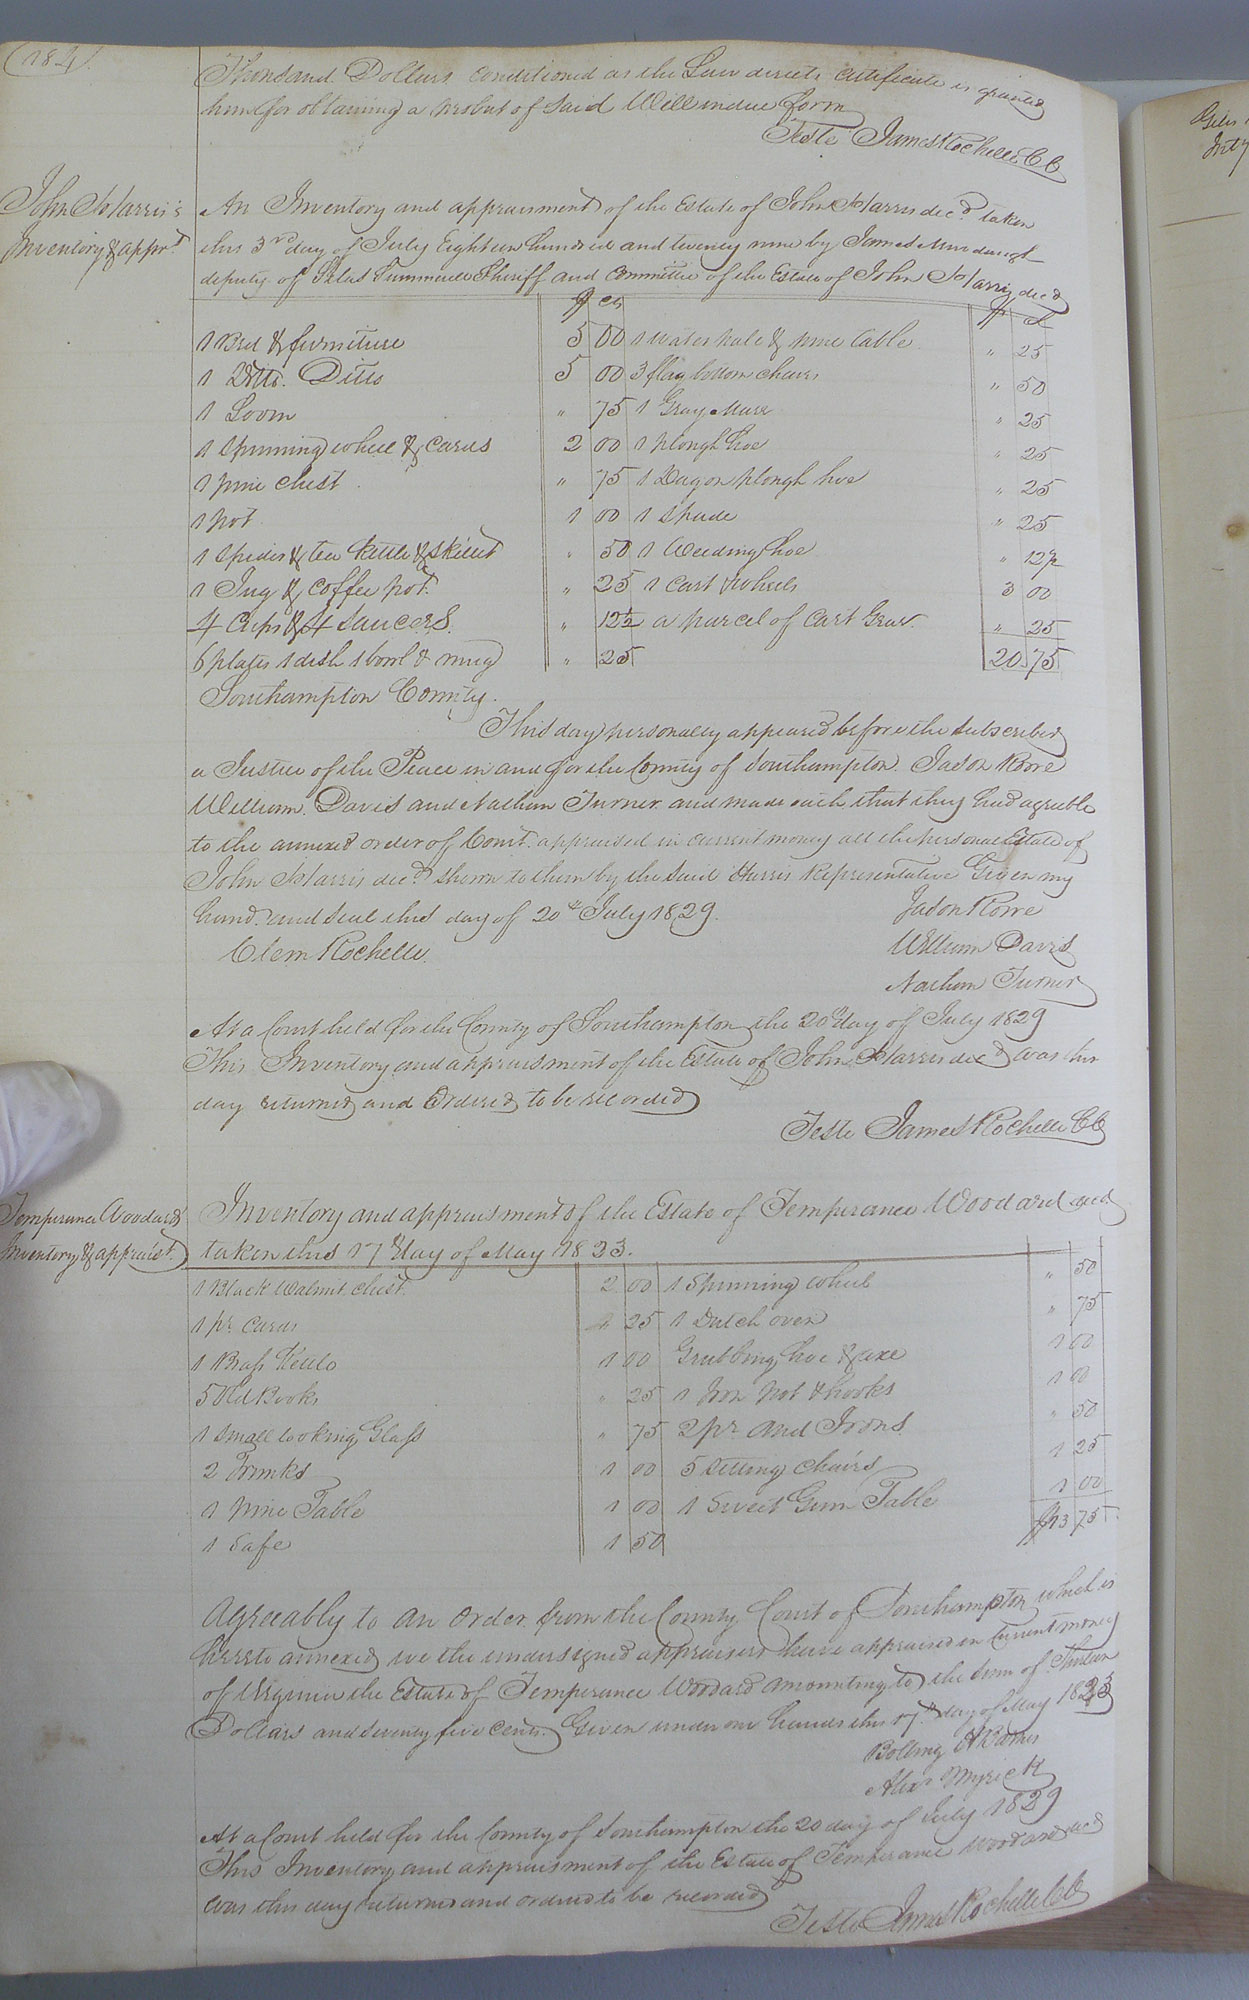 (184)
Thousand Dollars conditioned as the Law directs certificate is granted
him for obtaining a probat of said Will in due form
Teste James Rochelle CC
John Harris's
Inventory & apprt.
An Inventory and appraisment of the Estate of John Harris decd. taken
this 3rd day of July Eighteen hundred and twenty nine by James Murdaugh
deputy of Silas Summerell Sheriff and Committee of the Estate of John Harris decd
$ cts $ ct
1 Bed & furniture 5 00 1 water pale & pine table " 25
1 Ditto. Ditto 5 00 3 flag bottom chairs " 50
1 Loom " 75 1 Gray Mare " 25
1 Spinning wheel & cards 2 00 1 plough hoe " 25
1 pine chest " 75 1 Dagon plough hoe " 25
1 pot 1 00 1 Spade " 25
1 Spider & tea kettle & skillet " 50 1 Weeding hoe " 12½
1 Jug & coffee pot. " 25 1 cart wheels 3 00
4 Cups & 4 Saucers. " 12½ a parcel of cart Gear " 25
6 plates 1 dish 1 bowl & mug " 25 20 75
Southampton County.
This day personally appeared before the subscriber
a Justice of the Peace in and for the County of Southampton. Jason Rowe
William. Davis and Nathan Turner and made oath that they had agreeble
to the annexed order of Court. appraised in current money all the personal Estate of
John Harris decd. shown to them by the said Harris Representative Given my
hand. and seal this day of 20th July 1829.
Jason Rowe
Clem Rochelle.
William Davis
Nathan Turner
At a Court held for the County of Southampton the 20th day of July 1829
This Inventory and appraisment of the Estate of John Harris decd was this
day returned and Ordered to be recorded
Teste James Rochelle CC
Temperance Woodards
Inventory & appraist.
Inventory and appraisment of the Estate of Temperance Woodard decd.
taken this 17th day of May 1823.
1 Black Walnut chest. 2 00 1 Spinning wheel " 50
1 pr. cards " 25 1 Dutch oven " 75
1 Brass Kettle 1 00 Grubbing hoe & axe 1 00
5 Old Books " 25 1 Iron pot & hooks 1 00
1 small looking Glass " 75 2 pr. And Irons " 50
2 Trunks 1 00 5 Sitting chairs 1 25
1 pine Table 1 00 1 Sweet Gum Table 1 00
1 Safe 1 50 $13 75
Agreeably to an Order from the County Court of Southampton which is
hereto annexed we the undersigned appraisers have appraised in Current money
of Virginia the Estate of Temperance Woodard amounting to the sum of Thirteen
Dollars and seventy five cents. Given under our hands this 17th day of May 1823
Bolling H Barnes
Alexr Myrick
At a Court held for the County of Southampton the 20 day of July 1829
This Inventory and appraisment of the Estate of Temperance Woodard decd
was this day returned and ordered to be recorded
Teste James Rochelle CC